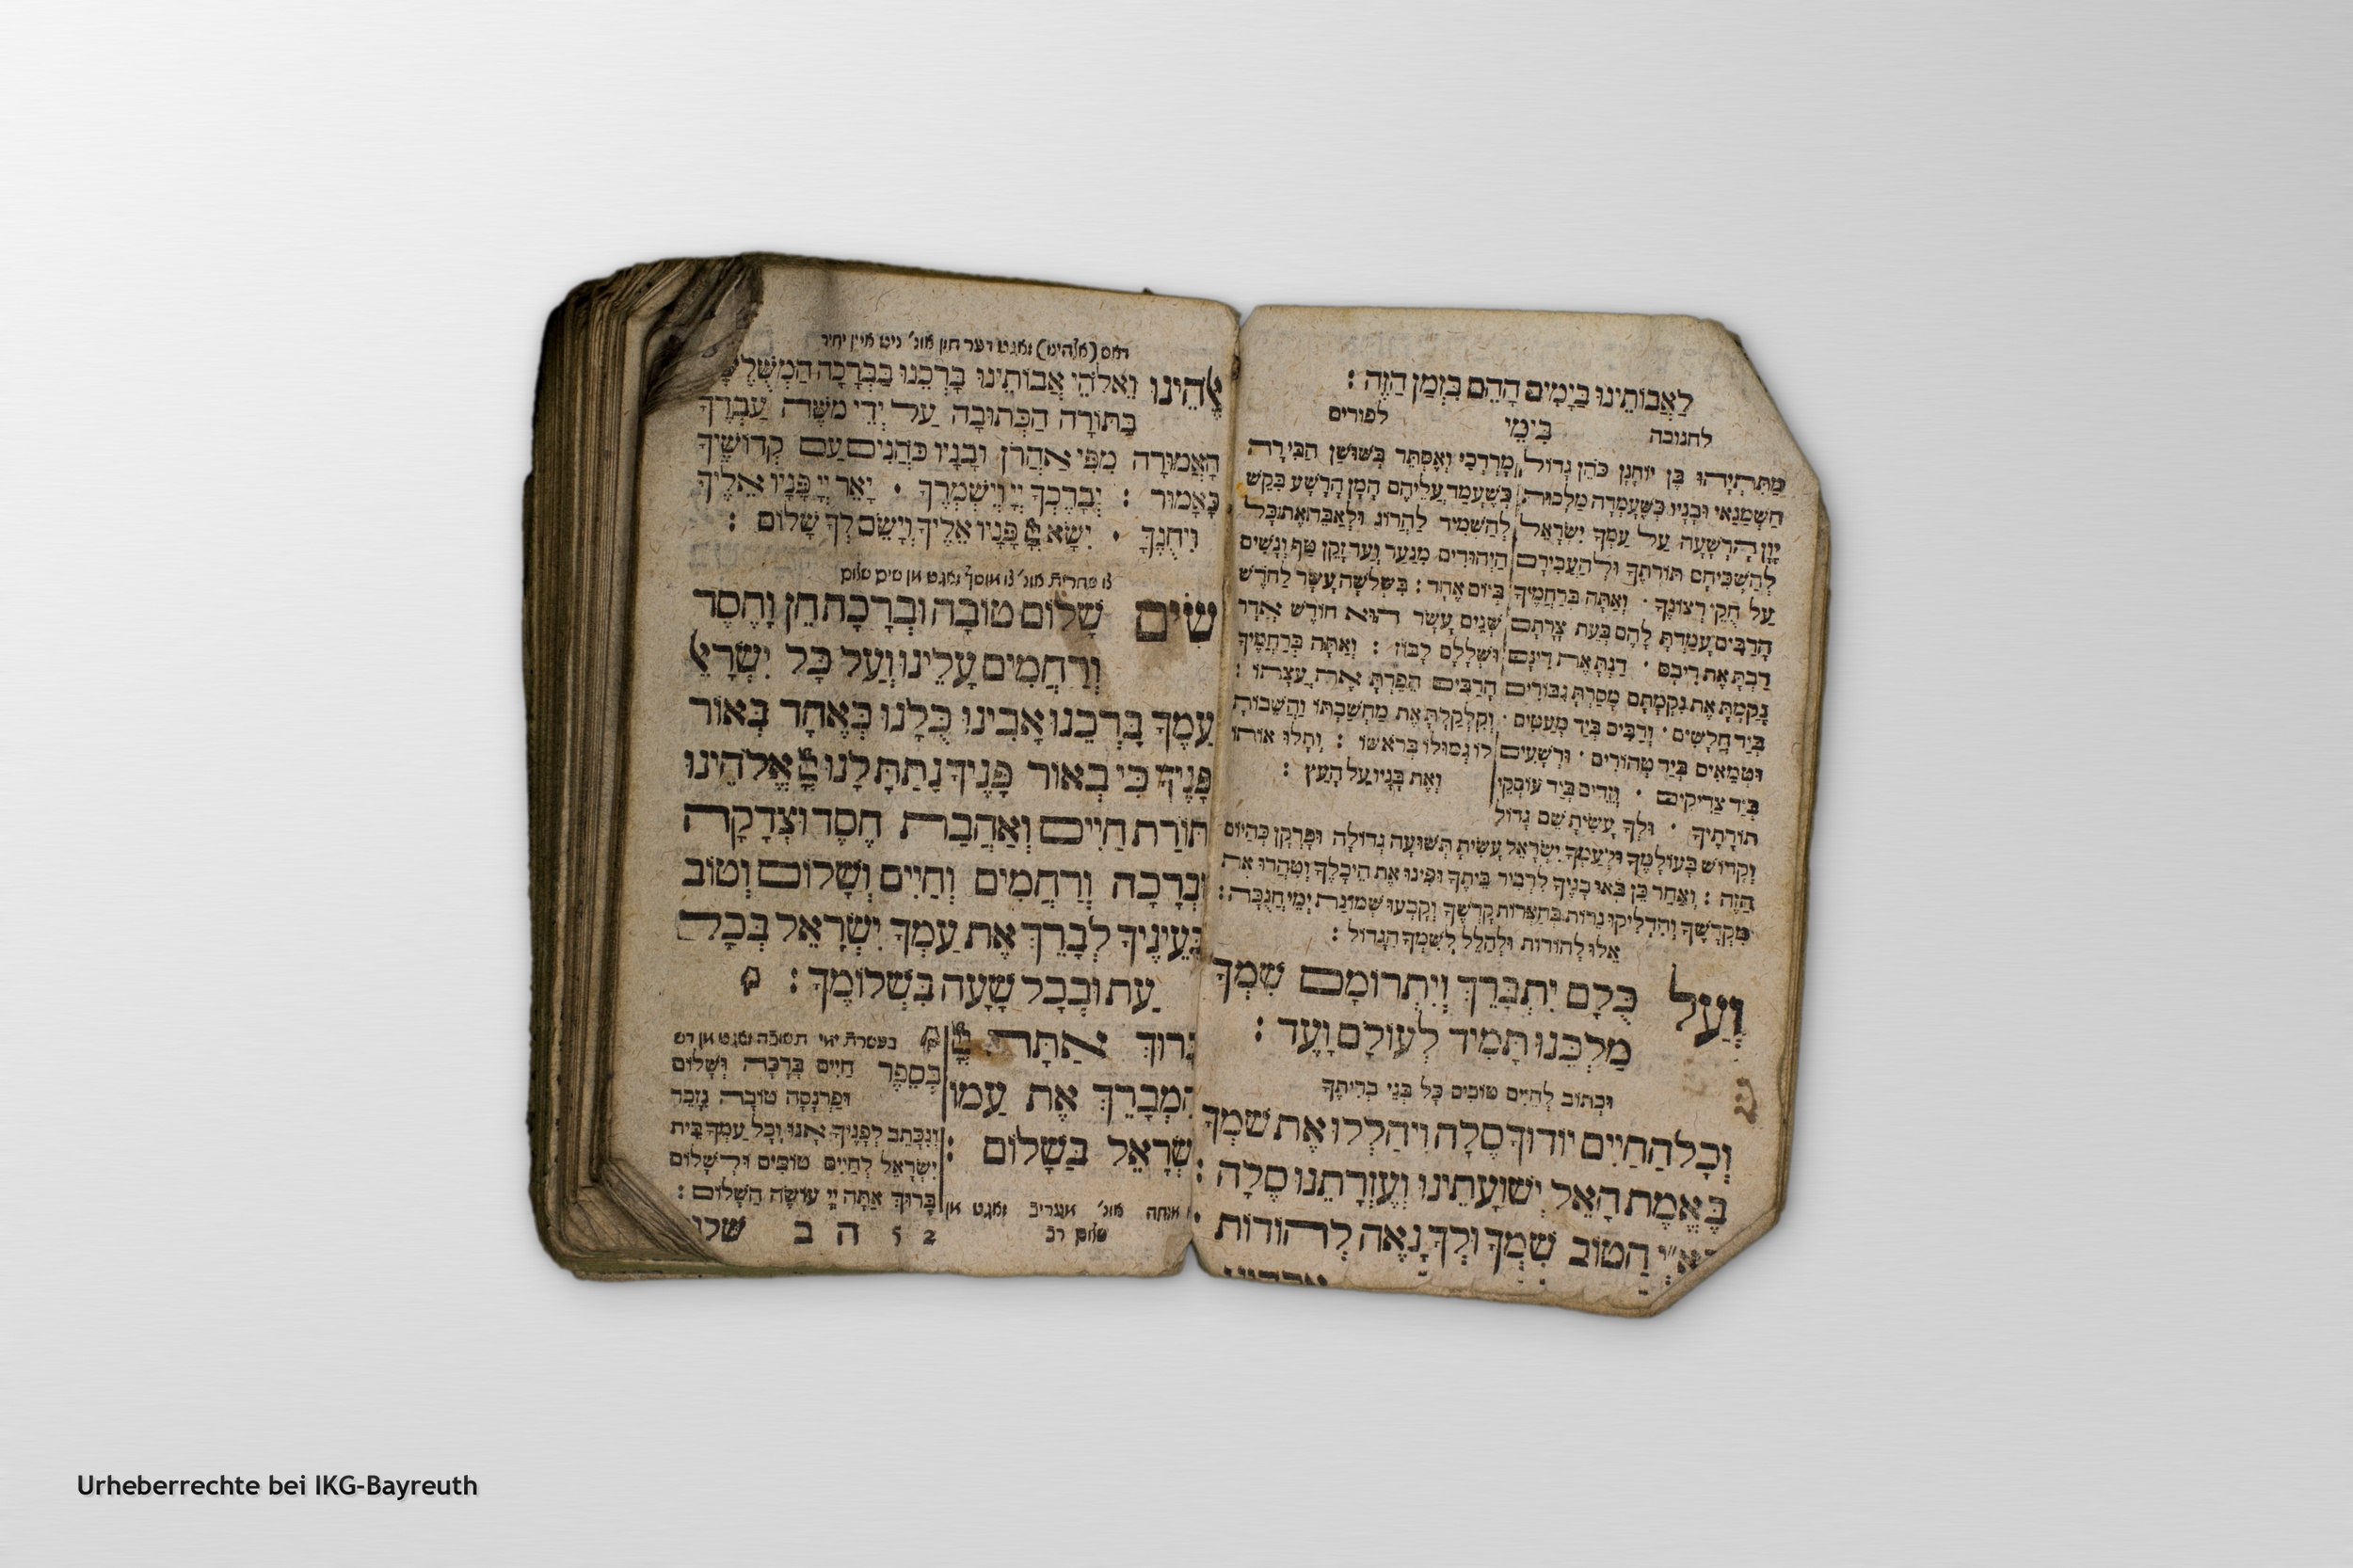 לַאֲבוֹתֵינוּ בַּיָמִים הָהֵם בַּזְמַן הַזֶה :
לחנוכה בִּימֵי לפורים
מַתִּתְיָהוּ בֶּן יוֹחָנָן כֹּהֵן גָדוֹל
חַשְׁמֻנַאי וּבָנָיו כְּשֶׁעָמְדָה מַלְכוּת
יָוָן הָרְשָׁעָה עַל עַמְךָ יִשְׂרָאֵל
לְהַשְׁכִּיחָם תּוֹרָתֶךָ וּלְהַעֲבִירָם
עַל חֻקֵי רְצוֹנֶךָ · וְאַתָּה בְּרַחֲמֶיךָ
הָרַבִּים עָמַדְתָּ לָהֶם בְּעֵת צָרָתָם
רַבְתָּ אֶת רִיבָם · דַנְתָּ אֶת דִינָם
נָקַמְתָּ אֶת נִקְמָתָם מָסַרְתָּ גִבּוֹרִים
בְּיַד חֲלָשִׁים · וְרַבִּים בְּיַד מְעַטִים ·
וּטְמֵאִים בְּיַד טְהוֹרִים · וּרְשָׁעִים
בְּיַד צַדִיקִים · וְזֵדִים בְּיַד עוֹסְקֵי
תוֹרָתֶיךָ · וּלְךָ עָשִׂיתָ שֵׁם גָדוֹל
מָרְדְכַי וְאֶסְתֵּר בְּשׁוּשַׁן הַבִּירָה
כְּשֶׁעָמַד עֲלֵיהֶם הָמָן הָרָשָׁע בִּקֵשׁ
לְהַשְׁמִיד לַהֲרוֹג וּלְאַבֵּד אֶת כָּל
הַיְהוּדִים מִנַעַר וְעַד זָקֵן טַף וְנָשִׁים
בְּיוֹם אֶחָד : בִּשְׁלֹשָׁה עָשָׂר לְחֹדֶשׁ
שְׁנֵים עָשָׂר הוּא חוֹדֶשׁ אֲדָר
וּשְׁלָלָם לָבוֹז : וְאַתָּה בְּרַחֲמֶיךָ
הָרַבִּים הֵפַרְתָּ אֶת עֲצָתוֹ :
וְקִלְקַלְתָּ אֶת מַחְשַׁבְתּוֹ וַהֲשֵׁבוֹתָ
לוֹ גְמוּלוֹ בְּרֹאשׁוֹ : וְתָלוּ אוֹתוֹ
וְאֶת בָּנָיו עַל הָעֵץ :
וְקָדוֹשׁ בְּעוֹלָמֶךָ וּלְעַמְךָ יִשְׂרָאֵל עָשִׂיתָ תְּשׁוּעָה גְדוֹלָה וּפֻרְקָן כְּהַיוֹם
הַזֶה : וְאַחַר כֵּן בָּאוּ בָנֶיךָ לִדְבִיר בֵּיתֶךָ וּפִינוּ אֶת הֵיכָלֶךָ וְטִהֲרוּ אֶת
מִקְדָשֶׁךָ וְהִדְלִיקוּ נֵרוֹת בְּחַצְרוֹת קָדְשֶׁךָ וְקָבְעוּ שְׁמוֹנַת יְמֵי חֲנֻכָּה :
אֵלוּ לְהוֹדוֹת וּלְהַלֵל לְשִׁמְךָ הַגָדוֹל :
וְעַל כֻּלָם יִתְבָּרֵךְ וְיִתְרוֹמָם שִׁמְךָ
מַלְכֵּנוּ תָּמִיד לְעוֹלָם וָעֶד :
וּכְתוֹב לְחַיִים טוֹבִים כָּל בְּנֵי בְרִיתֶךָ
וְכָל הַחַיִים יוֹדוּךָ סֶלָה וִיהַלְלוּ אֶת שִׁמְךָ
בֶּאֱמֶת הָאֵל יְשׁוּעָתֵינוּ וְעֶזְרָתֵנוּ סֶלָה :
בָּאְ״יְ הַטוֹב שִׁמְךָ וּלְךָ נָאֶה לְהוֹדוֹת
דאס (אלהינו) זאגט דער חזן אונ׳ ניט איין יחיד
אֱלֹהֵינוּ וֵאלֹהֵי אֲבוֹתֵינוּ בָּרְכֵנוּ בַּבְּרָכָה הַמְשֻׁלֶשֶׁת
בַּתּוֹרָה הַכְּתוּבָה עַל יְדֵי מֹשֶׁה עַבְדֶךָ
הָאֲמוּרָה מִפִּי אַהֲרֹן וּבָנָיו כֹּהֲנִים עַם קְדוֹשֶׁיךָ
כָּאָמוּר : יְבָרֶכְךָ יְיָ וְיִשְׁמְרֶךָ · יָאֵר יְיָ פָּנָיו אֵלֶיךָ
וִיחֻנֶךָּ · יִשָׂא יְיָ פָּנָיו אֵלֶיךָ וְיָשֵׂם לְךָ שָׁלוֹם :
צו שחרית אונ׳ צו מוסף זאגט מן שים שלום
שִׂים שָׁלוֹם טוֹבָה וּבְרָכָה חֵן וָחֶסֶד
וְרַחֲמִים עָלֵינוּ וְעַל כָּל יִשְׂרָאֵל
עַמֶךָ בָּרְכֵנוּ אָבִינוּ כֻּלָנוּ כְּאֶחָד בְּאוֹר
פָּנֶיךָ כִּי בְאוֹר פָּנֶיךָ נָתַתָּ לָנוּ יְיָ אֱלֹהֵינוּ
תּוֹרַת חַיִים וְאַהֲבַת חֶסֶד וּצְדָקָה
וּבְרָכָה וְרַחֲמִים וְחַיִים וְשָׁלוֹם וְטוֹב
בְּעֵינֶיךָ לְבָרֵךְ אֶת עַמְךָ יִשְׂרָאֵל בְּכָל
עֵת וּבְכָל שָׁעָה בִּשְׁלוֹמֶךָ :
בָּרוּךְ אַתָּה יְיָ
הַמְבָרֵךְ אֶת עַמוֹ
יִשְׂרָאֵל בַּשָׁלוֹם :
מנחה אונ׳ מעריב זאגט מן
שלום רב
בעשרת ימי תשובה זאגט מן דש
בְּסֵפֶר חַיִים בְּרָכָה וְשָׁלוֹם
וּפַרְנָסָה טוֹבָה נִזָכֵר
וְנִכָּתֵב לְפָנֶיךָ אָנוּ וְכָל עַמְךָ בֵּית
יִשְׂרָאֵל לְחַיִים טוֹבִים וּלְשָׁלוֹם
בָּרוּךְ אַתָּה יְיָ עוֹשֶׂה הַשָׁלוֹם :
2 5 ה ב שלו
Urheberrechte bei IKG-Bayreuth